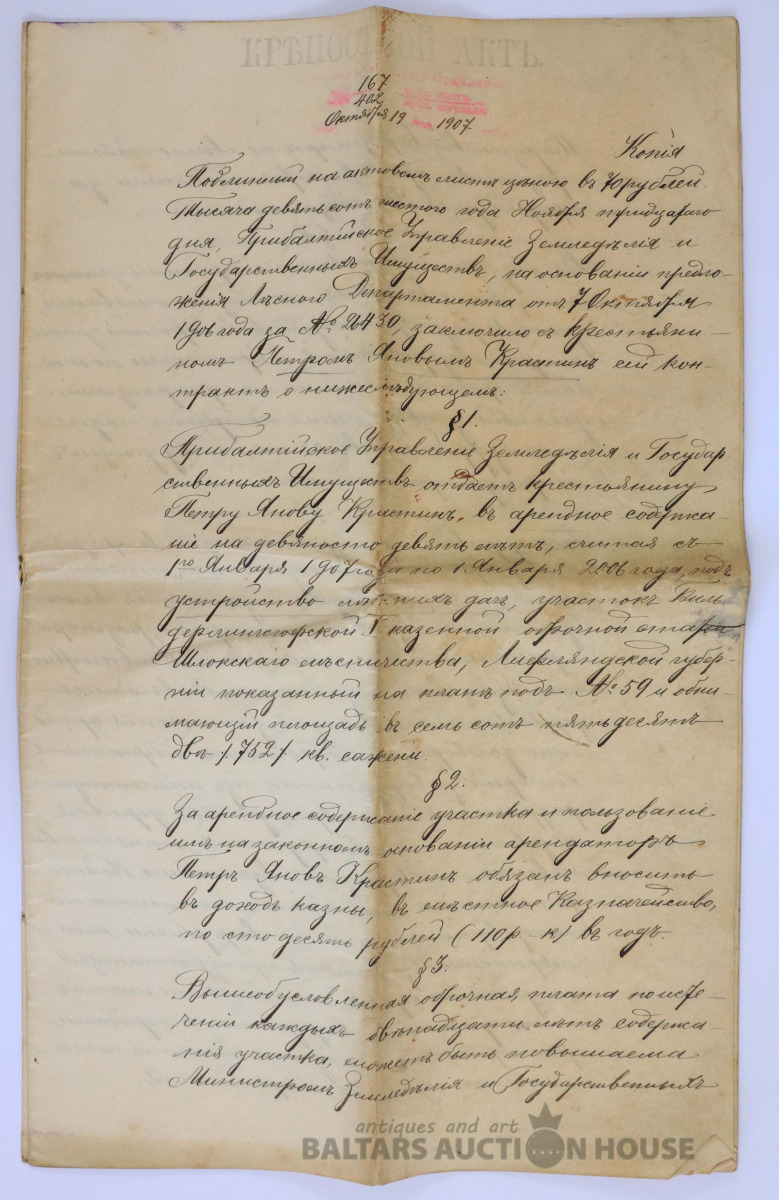 КРѢПОСТНОЙ АКТЪ.
167
402
Октября 19 1907
Копія
Подлинный на актовомъ листѣ цѣною въ 70 рублей.
Тысяча девятьсотъ шестого года Ноября тридцатаго
дня, Прибалтійское Управленіе Земледѣлія и
Государственныхъ Имуществъ, на основаніи предло-
женія Лѣсного Департамента отъ 7 Октября
1906 года за № 26430, заключило съ крестьяни-
номъ Петромъ Яновымъ Крастинъ сей кон-
трактъ о нижеслѣдующемъ:
§1.
Прибалтійское Управленіе Земледѣлія и Государ
ственныхъ Имуществъ отдаетъ крестьянину
Петру Янову Крастинъ, въ арендное содержа-
ніе на девяносто девять лѣтъ, считая съ
1го Января 1907 года по 1 Января 2006 года, подъ
устройство лѣтнихъ дачъ, участокъ Биль
дерлингсгофской I казенной оброчной статьи
Шлокскаго лѣсничества, Лифляндской губер-
ніи показанный на планѣ подъ № 59 и обни-
мающій площадь въ семьсотъ пятьдесятъ
двѣ /752/ кв. сажени.
§2.
За арендное содержаніе участка и пользованіе
имъ на законномъ основаніи арендаторъ
Петръ Яновъ Крастинъ обязанъ вносить
въ доходъ казны, въ мѣстное Казначейство,
по сто десять рублей (110 р - к) въ годъ.
§3.
Вышеобусловленная оброчная плата по исте-
ченіи каждыхъ двѣнадцати лѣтъ содержа-
нія участка, можетъ быть повышаема
Министромъ Земледѣлія и Государственныхъ
antiques and art
BALTARS AUCTION HOUSE